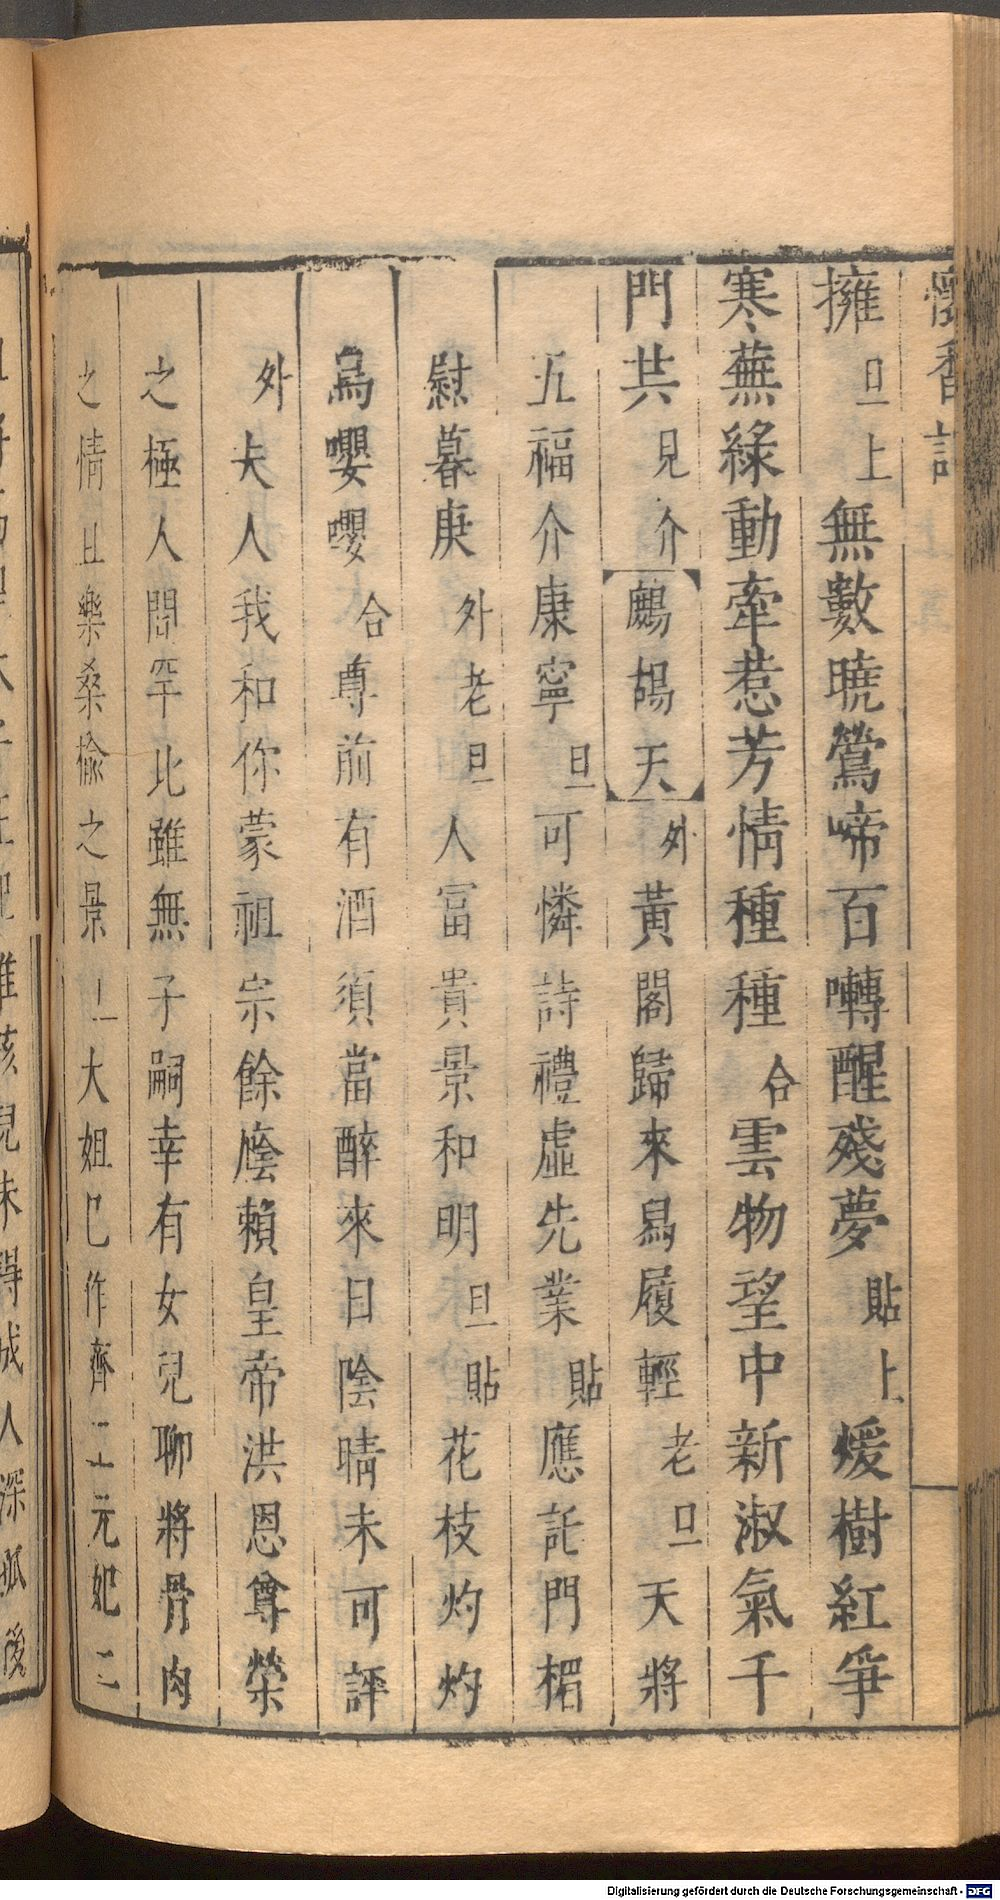 懷香記
擁旦上無數曉鶯啼百囀醒殘夢貼上煖樹紅爭
寒蕪綠動牽惹芳情種種合雲物望中新淑氣千
門共見介鷓鴣天外黃閣歸來舄履輕老旦天將
五福介康寧旦可憐詩禮虛先業貼應託門楣
慰暮庚外老旦人富貴景和明旦貼花枝灼灼
鳥嚶嚶合尊前有酒須當醉來日陰晴未可評
外夫人我和你蒙祖宗餘廕賴皇帝洪恩尊榮
之極人間罕比雖無子嗣幸有女兒聊將骨肉
之情且樂桑楡之景大姐已作齊王元妃二
Digitalisierung gefördert durch die Deutsche Forschungsgemeinschaft - DFG